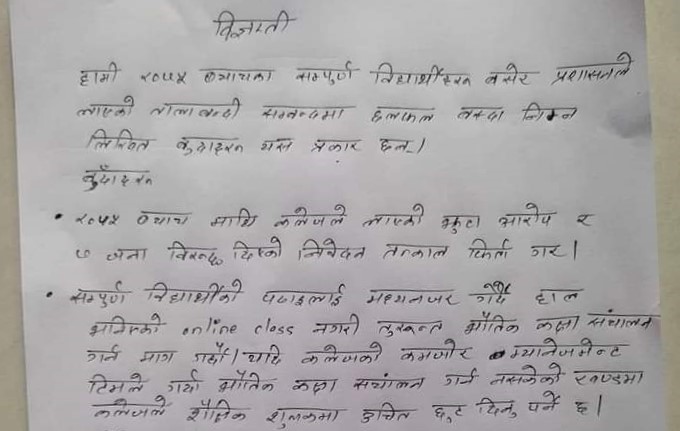 विज्ञप्ती
हामी २०७५ ब्याचका सम्पूर्ण विद्यार्थीहरु बसेर प्रशासनले
लाएको तालाबन्दी सम्बन्दमा छलफल गर्दा निम्न
लिखित बुदाहरु यस प्रकार छन् ।
बुँदाहरु
• २०७५ ब्याच माथि कलेजले लाएको झुटा आरोप र
७ जना विरुद्ध दिएको निवेदन तत्काल फिर्ता गर ।
• सम्पूर्ण विद्यार्थीको पढाइलाई मध्यनजर गर्दै हाल
भनिएको online class नगरी तुरुन्त भौतिक कक्षा संचालन
गर्न माग गर्दछौं । यदि कलेजको कमजोर म्यानेजमेन्ट
टिमले गर्दा भौतिक कक्षा संचालन गर्न नसकेको खण्डमा
कलेजले शैक्षिक शुल्कमा उचित छुट दिनु पर्ने छ ।